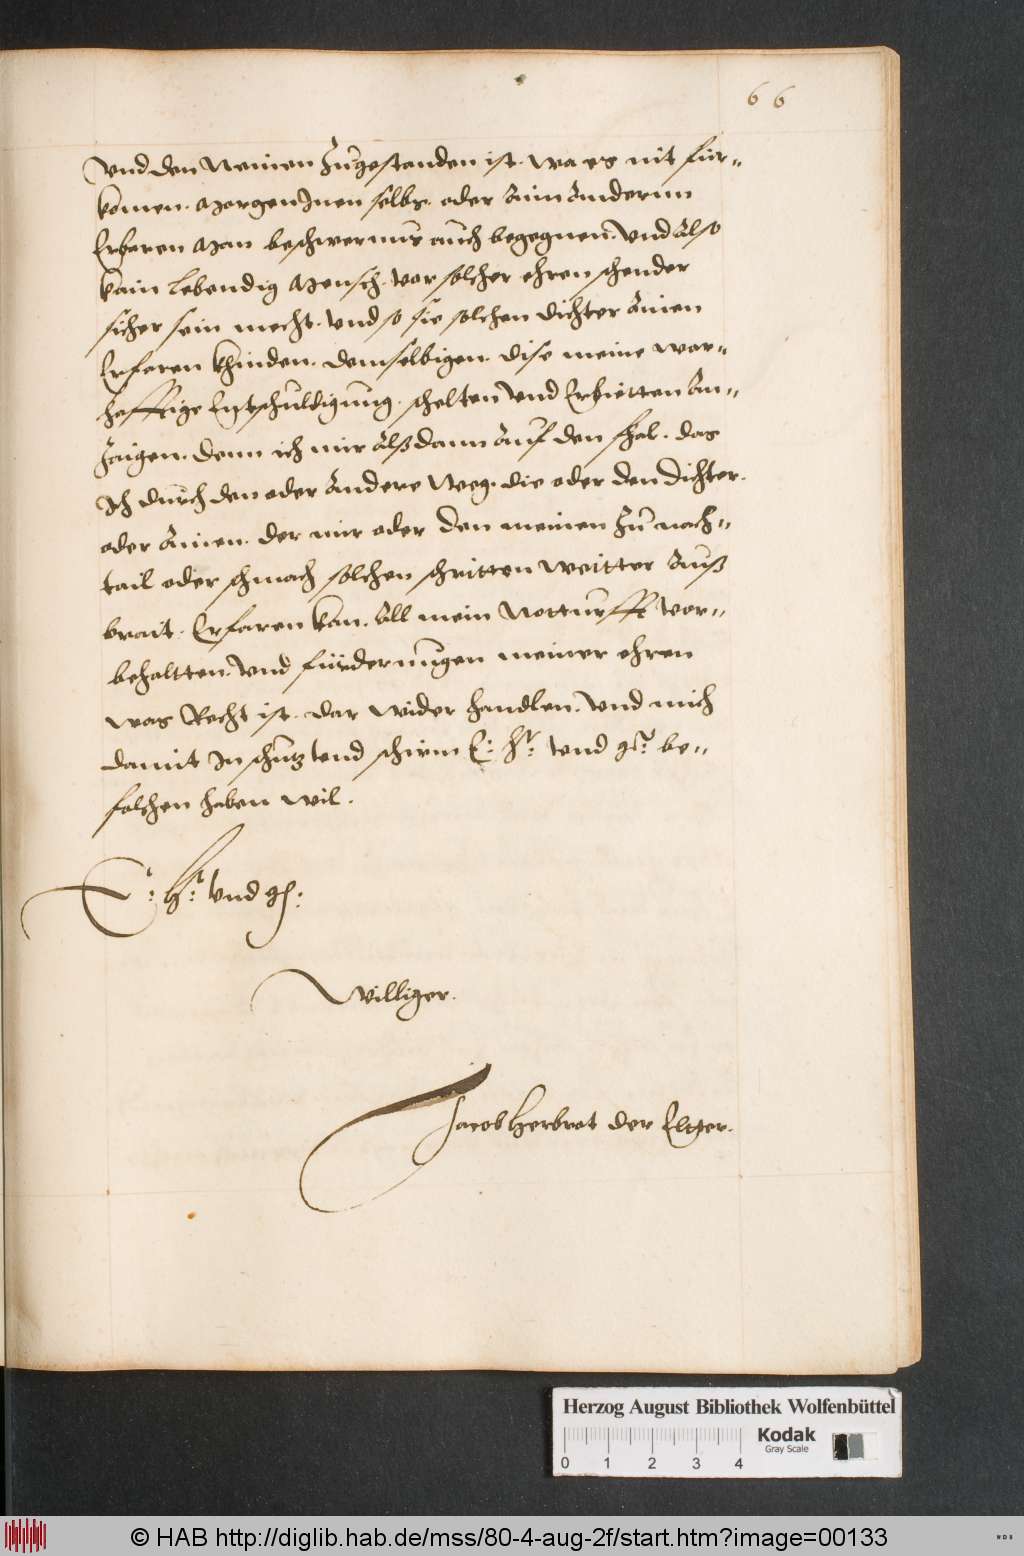 66
vnd den Meinen Zugestanden ist. wa es nit für-
komen. Morgen Inen selbs. oder Ainn Anderun
Erbaren Man beschwernus auch begegnen. Vnd Also
kain lebendig Mensch. vor solcher ehren schender
sicher sein mecht. Vnd so sie solchen dichter Ainen
Erfaren khinden. demselbigen. dise meine war-
hafftige Entschuldigung. schelten vnd Erbietten An-
Zaigen. denn ich mir Alß dann Auf den fhal. das
Ich durch den oder Andere Weg. die oder den dichter.
oder Ainen. der mir oder den meinen Zu nach-
tail oder schmach solchen schritten weitter Auß
brait. Erfaren kan. All mein Notturfft vor-
behaltten. Vnd fürdernungen meiner ehren
was Recht ist. dar wider handlen. Vnd mich
damit In schutz vnd schirm E: hr: vnd gst: be-
folchen haben wil.
E: hr: vnd gst:
Williger.
Jacob Herbrot der Elter.
Herzog August Bibliothek Wolfenbüttel
Kodak
Gray Scale
0 1 2 3 4
© HAB http://diglib.hab.de/mss/80-4-aug-2f/start.htm?image=00133